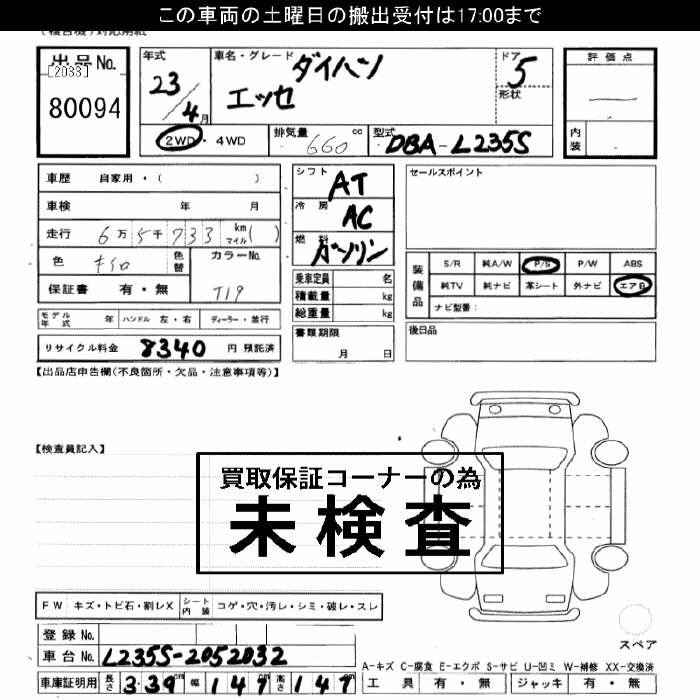 この車両の土曜日の搬出受付は17:00まで
出品No.
[2033]
80094
年式
23/4月
車名・グレード
ダイハツ
エッセ
ドア
5
形状
評価点
内装
2WD・4WD
排気量 660 cc
型式 DBA-L235S
車歴 自家用・( )
車検 年 月
走行 6万5千733 km マイル( )
色 キイロ
色替
カラーNo.
T19
保証書 有・無
モデル年式 年 ハンドル 左・右 ディーラー・並行
リサイクル料金 8340 円 預託済
シフト AT
冷房 AC
燃料 ガソリン
乗車定員 名
積載量 kg
総重量 kg
書類期限
月 日
セールスポイント
装備品
S/R 純A/W P/S P/W ABS
純TV 純ナビ 革シート 外ナビ エアB
ナビ型番:
後日品
【出品店申告欄(不良箇所・欠品・注意事項等)】
【検査員記入】
買取保証コーナーの為
未検査
FW キズ・トビ石・割レX シート内装 コゲ・穴・汚レ・シミ・破レ・スレ
登録No.
車台No. L235S-2052032
車庫証明用 長さ 3.39 cm 幅 147 cm 高さ 147
スペア
A-キズ C-腐食 E-エクボ S-サビ U-凹ミ W-補修 XX-交換済
工具 有・無 ジャッキ 有・無